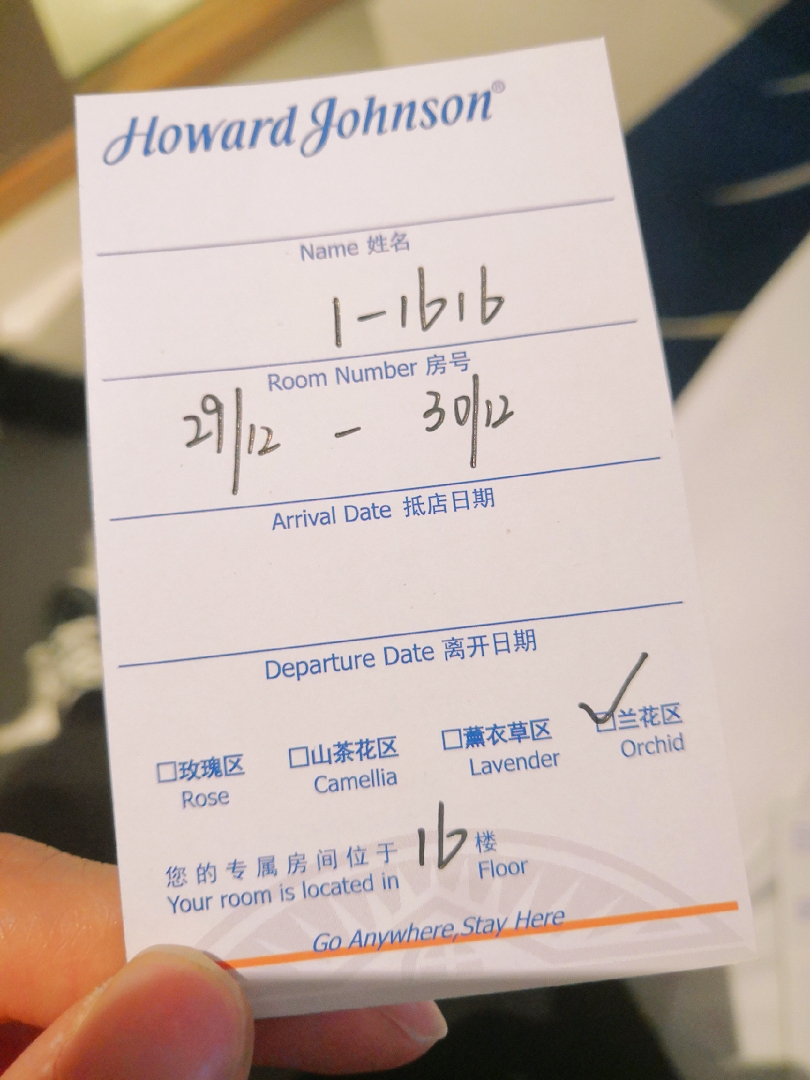 Howard Johnson®
Name 姓名
1-1616
Room Number 房号
29/12 - 30/12
Arrival Date 抵店日期
Departure Date 离开日期
□玫瑰区 □山茶花区 □薰衣草区 ☑兰花区
Rose Camellia Lavender Orchid
您的专属房间位于 16 楼
Your room is located in Floor
Go Anywhere,Stay Here